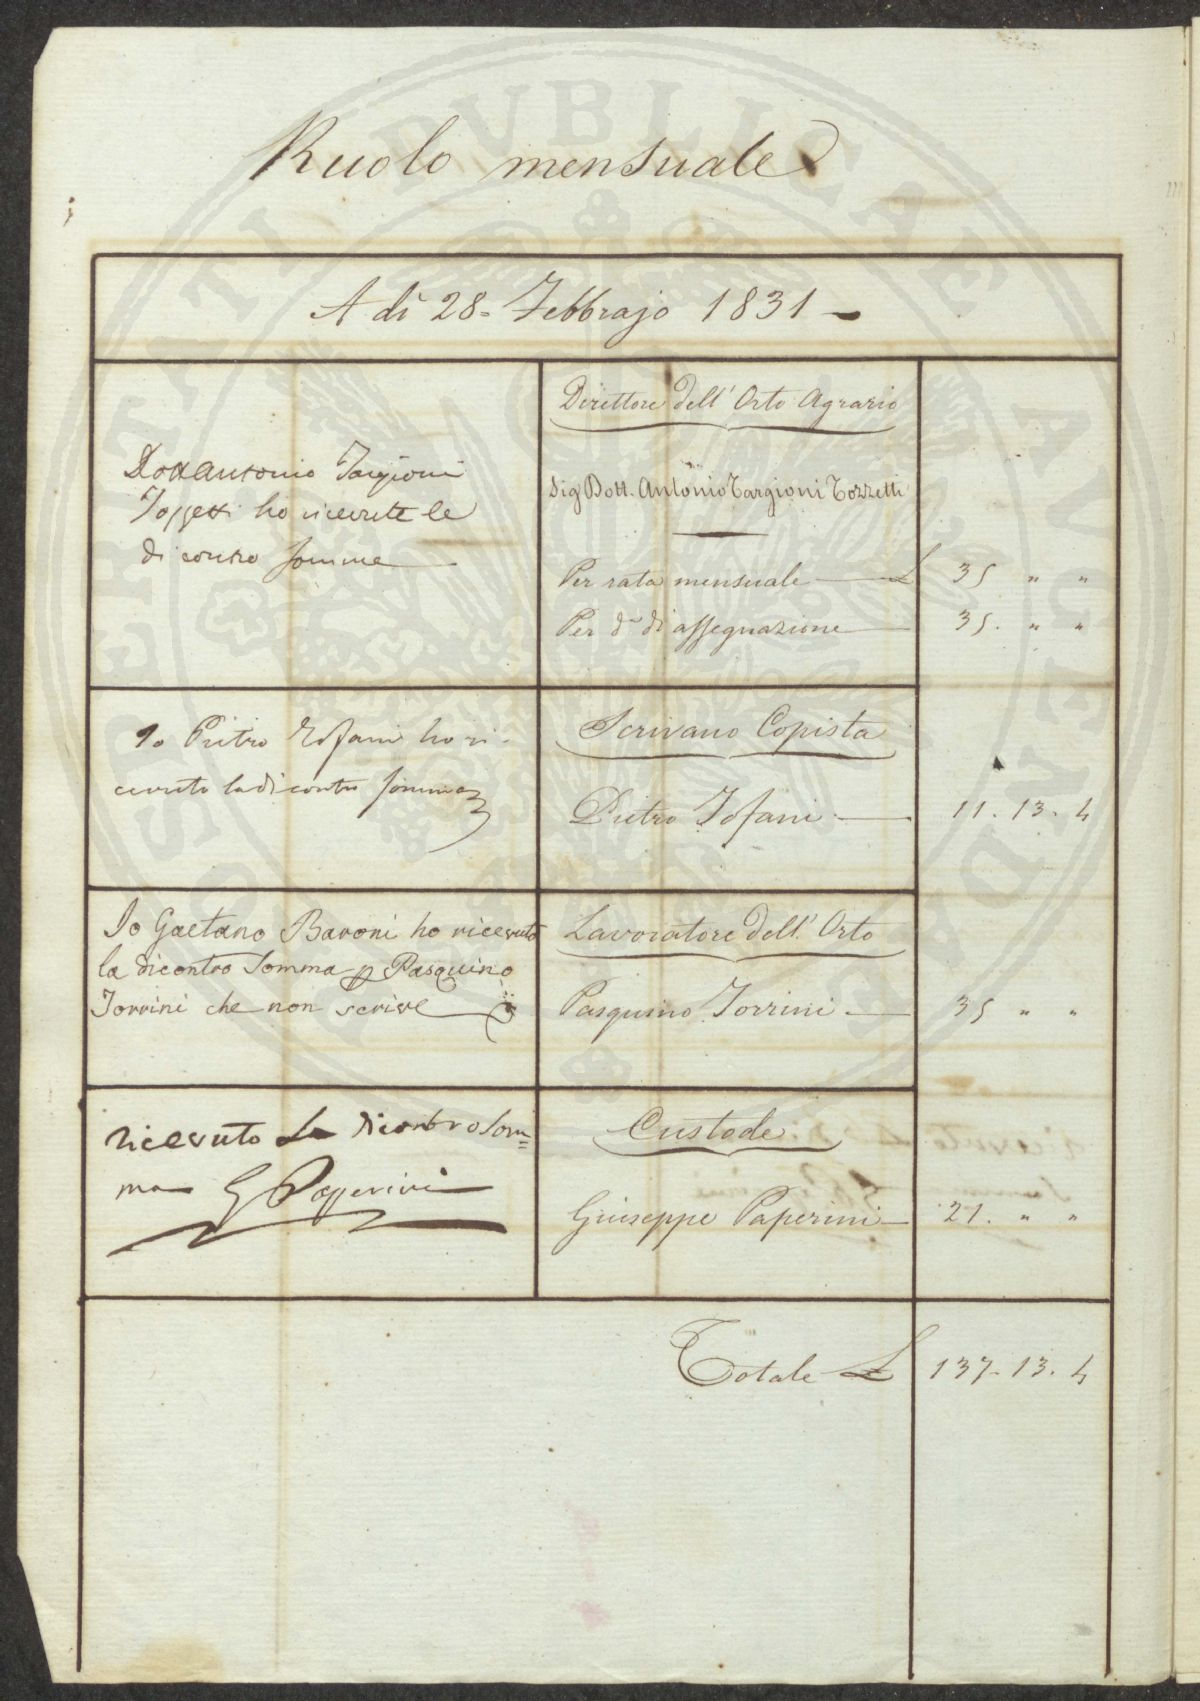 Ruolo mensuale
A dì 28 = Febbrajo 1831 —
Direttore dell' Orto Agrario
Dott Antonio Targioni
Tozzetti ho ricevute le
di contro somme
Sig Dott. Antonio Targioni Tozzetti
Per rata mensuale — £ 35 " "
Per d.º di assegnazione — 35. " "
Io Pietro Tofani ho ri-
cevuto la di contro somma
Scrivano Copista
Pietro Tofani — 11. 13. 4
Io Gaetano Baroni ho ricevuto
la dicontro Somma p Pasquino
Torrini che non scrive
Lavoratore dell' Orto
Pasquino Torrini — 35 " "
ricevuto La dicontro Som=
ma G Papperini
Custode
Giuseppe Paperini — 21. " "
Totale £ 137. 13. 4